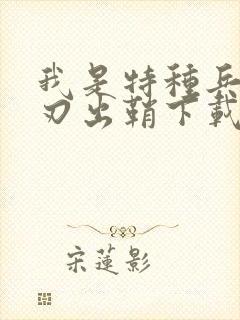 我是特種兵
刃出鞘下載
宋蓮影